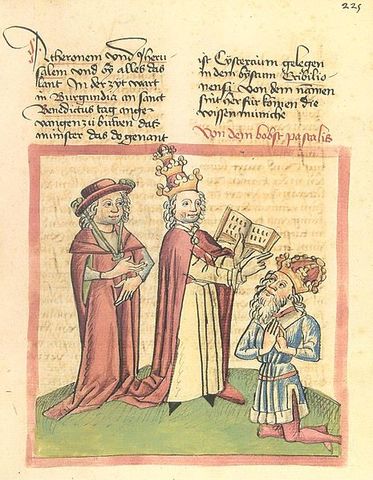 225
Atheronem vnd Iheru
salem vnd oy alles das
lant In der zyt wart
in Burgundia an sant
Benedictus tag ange
vangen zu buwen dat
münster das do genant
ist Cysterzium gelegen
in dem bystum
nensi Von dem namen
sint her für komen die
wissen müniche
Von dem bobst pascalis